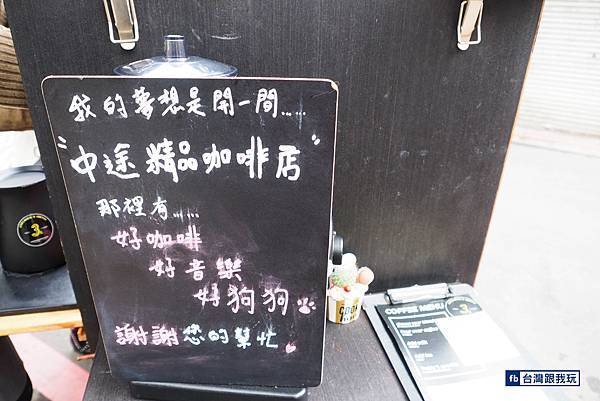 我的夢想是開一間......
"中途精品咖啡店"
那裡有......
好咖啡
好音樂
好狗狗
謝謝您的幫忙
3
GOOD
COFFEE MENU
fb 台灣跟我玩